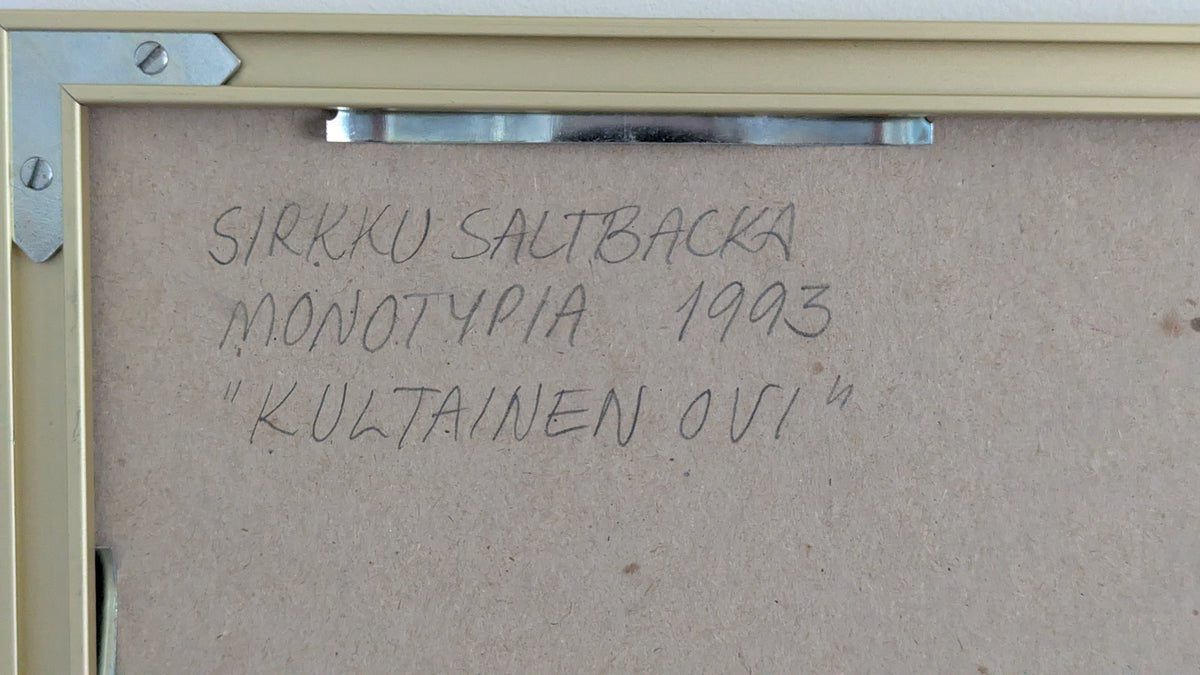 SIRKKU SALTBACKA
MONOTYPIA 1993
"KULTAINEN OVI"